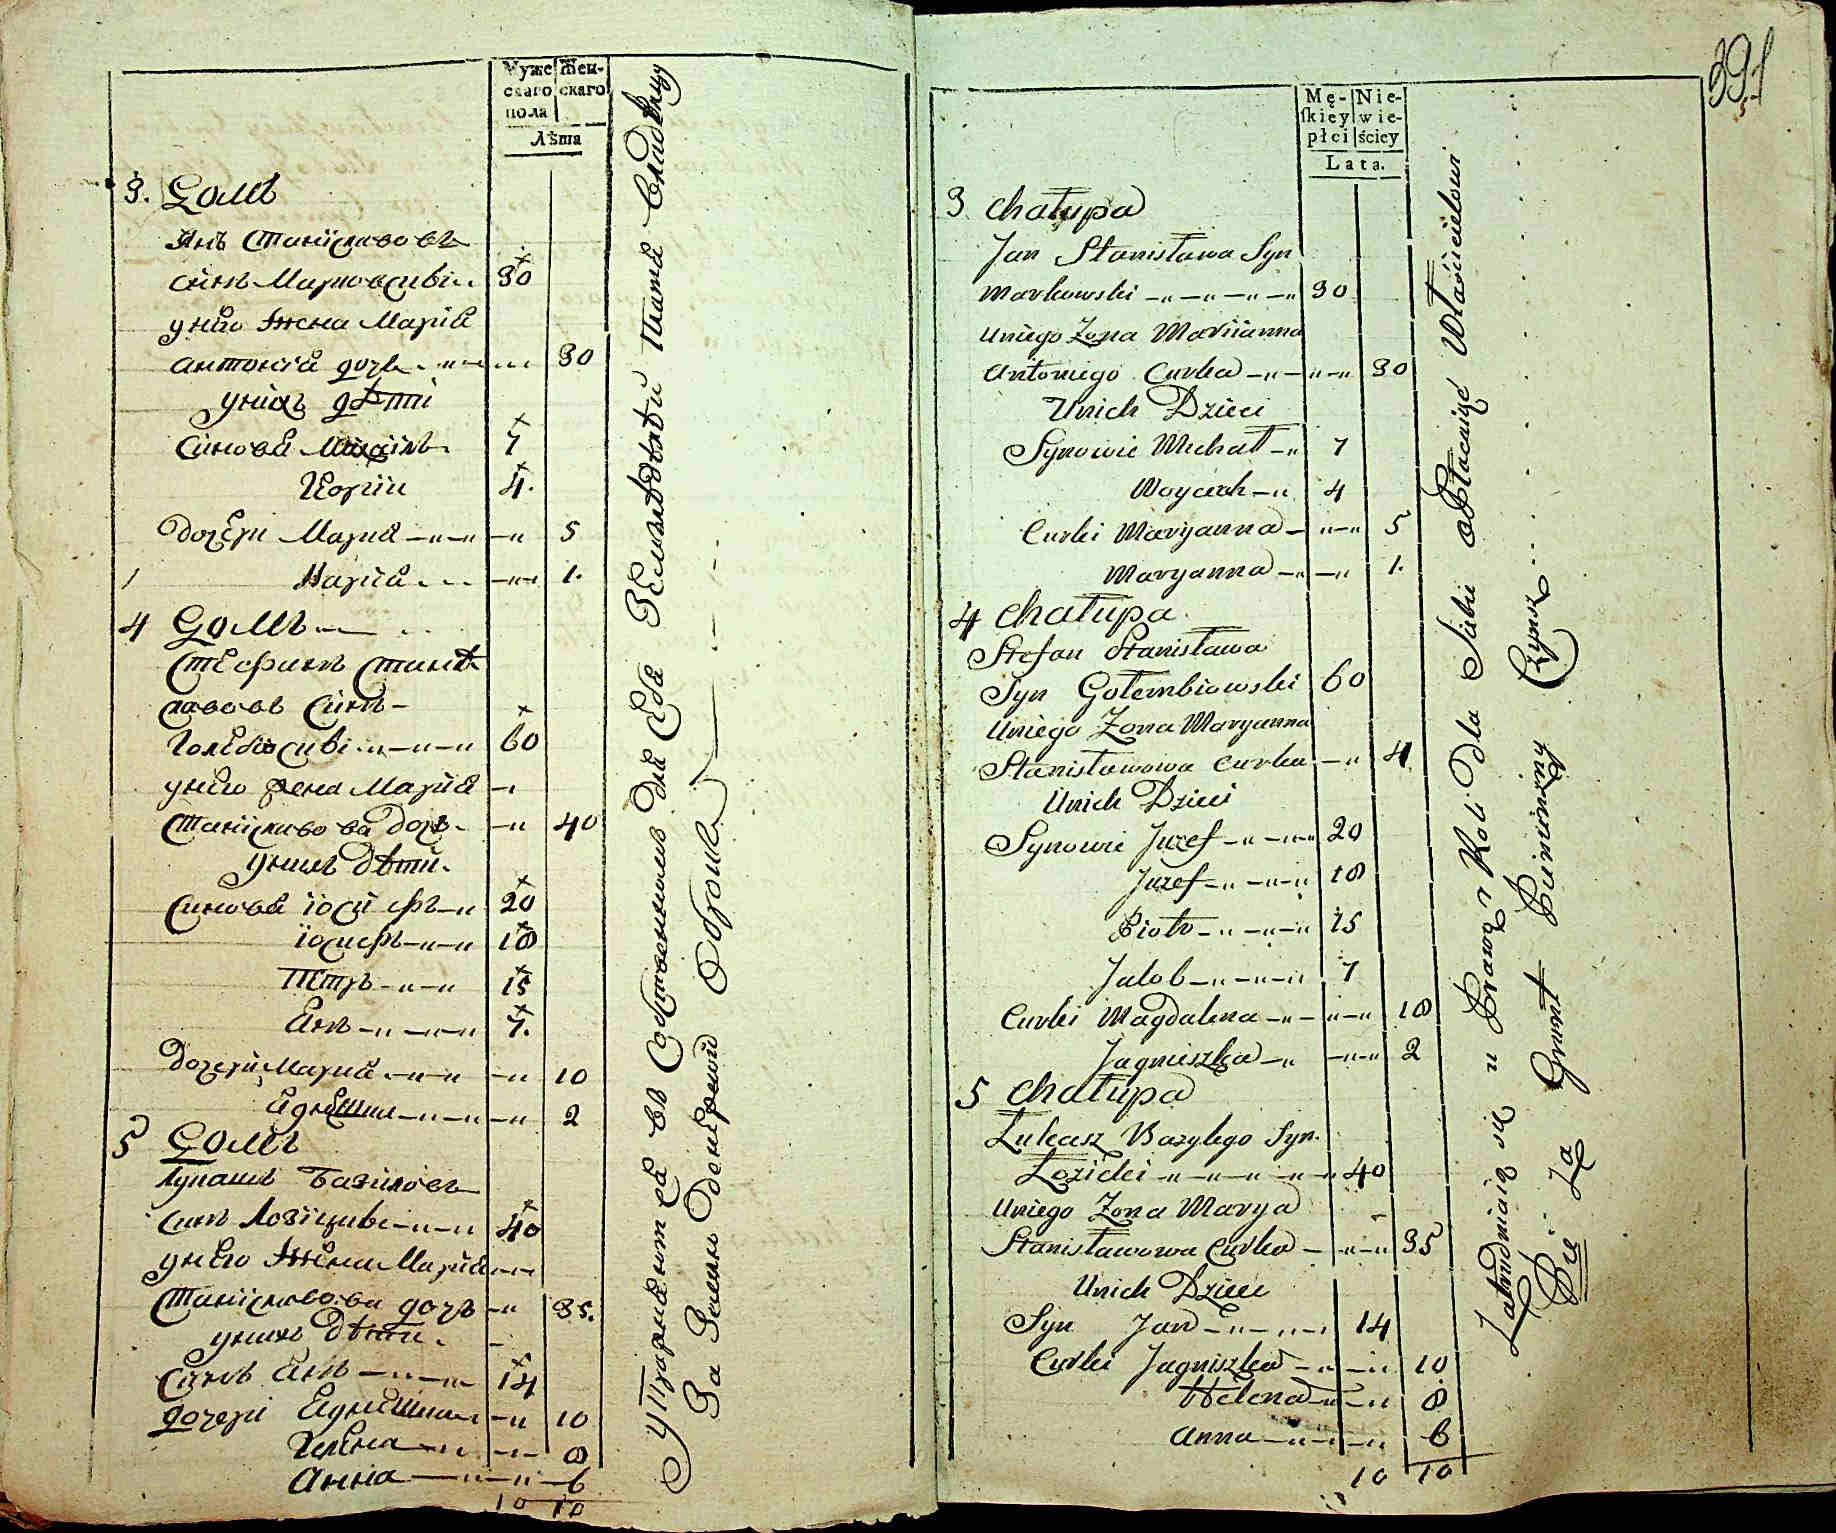 Муже Жен-
скаго скаго
пола
Лѣта
3. Домъ
Янъ Станіславовъ
синъ Марковскі 30
унего Жена Марія
антонія дочь 30
унихъ дѣти
Синовя Міхаілъ 7
4.
Дочери Марія 5
1 Марія 1.
4 Домъ
Стефанъ Стані
славовъ Синъ
Голембіовскі 60
унего жена Марія
Станіславова Дочь 40
унихъ Дѣти.
Синовя Іосифъ 20
Іосифъ 18
Петръ 15
Янъ 7.
Дочери Марія 10
Ягнешка 2
5 Домъ
Лукашъ Базилювъ
Синъ Лозіцкі 40
унего Жена Марія
Станіславова дочь 35.
унихъ Дѣти.
Синъ Янъ 14
дочери Ягнешка 10
Гелена 8
Анна 6
10 10
Упражняются въ Собственномъ для себя
За Землю Денежный Оброкъ
391
Mę- Nie-
skiey wie-
płci ściey
Lata.
3 Chałupa
Jan Stanisława Syn
Markowski 30
Uniego Zona Mariianna
Antoniego Curka 30
Unich Dzieci
Synowie Michał 7
Woyciech 4
Curki Maryanna 5
Maryanna 1.
4 Chałupa
Stefan Stanisława
Syn Gołembiowski 60
Uniego Zona Maryanna
Stanisławowa Curka 4
Unich Dzieci
Synowie Juzef 20
Juzef 18
Piotr 15
Jakob 7
Curki Magdalena 18
Jagnieszka 2
5 Chałupa
Łukasz Bazylego Syn.
Łozicki 40
Uniego Zona Marya
Stanisławowa Curka 35
Unich Dzieci
Syn Jan 14
Curki Jagniszka 10
Helena 8
Anna 6
10 10
Zatrudniaią się u Prawą z Roli Dla Siebie opłacaiąc Właścicielowi
Za Grunt Pieniężny Czynsz